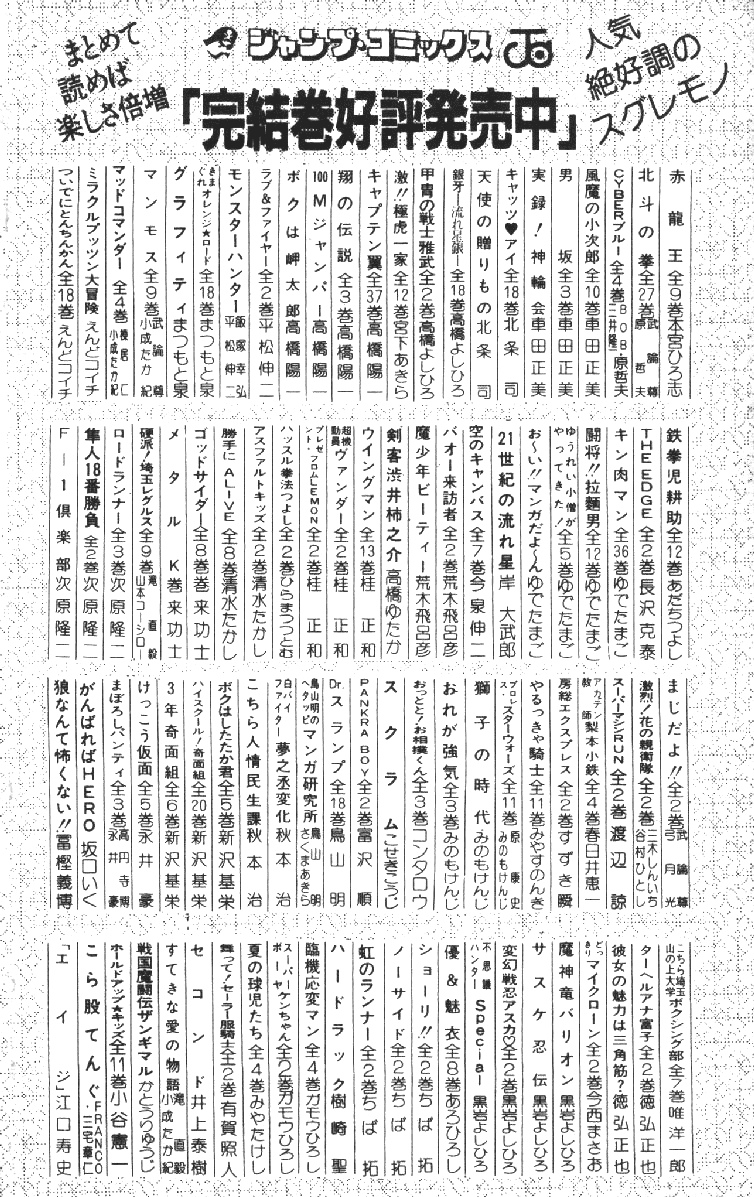 まとめて
読めば
楽しさ倍増
ジャンプ・コミックス
人気
絶好調の
スグレモノ
「完結巻好評発売中」
赤龍王 全9巻 本宮ひろ志
北斗の拳 全27巻 武論尊 原哲夫
CYBERブルー 全4巻 BOB・原哲夫 三井隆一
風魔の小次郎 全10巻 車田正美
男坂 全3巻 車田正美
実録!神輪会 車田正美
キャッツ♥アイ 全18巻 北条司
天使の贈りもの 北条司
銀牙―流れ星 銀― 全18巻 高橋よしひろ
甲冑の戦士雅武 全2巻 高橋よしひろ
激!!極虎一家 全12巻 宮下あきら
キャプテン翼 全37巻 高橋陽一
翔の伝説 全3巻 高橋陽一
100Mジャンパー 高橋陽一
ボクは岬太郎 高橋陽一
ラブ&ファイヤー 全2巻 平松伸二
モンスターハンター 飯塚幸弘 平松伸二
きまぐれオレンジ★ロード 全18巻 まつもと泉
グラフィティ まつもと泉
マンモス 全9巻 武論尊 小成たか紀
マッドコマンダー 全4巻 小成たか紀
ミラクルプッツン大冒険 えんどコイチ
ついでにとんちんかん 全18巻 えんどコイチ
鉄拳児耕助 全12巻 あだちつよし
THE EDGE 全2巻 長沢克泰
キン肉マン 全36巻 ゆでたまご
闘将!!拉麺男 全12巻 ゆでたまご
ゆうれい小僧がやってきた! 全5巻 ゆでたまご
お〜い!!マンガだよ〜ん ゆでたまご
21世紀の流れ星 岸大武郎
空のキャンバス 全7巻 今泉伸二
バオー来訪者 全2巻 荒木飛呂彦
魔少年ビーティー 荒木飛呂彦
剣客渋井柿之介 高橋ゆたか
ウイングマン 全13巻 桂正和
超機動員ヴァンダー 全2巻 桂正和
プレゼント・フロムLEMON 全2巻 桂正和
ハッスル拳法つよし 全2巻 ひらまつつとむ
アスファルトキッズ 全2巻 清水たかし
勝手にALIVE 全8巻 清水たかし
ゴッドサイダー 全8巻 巻来功士
メタルK 巻来功士
硬派!埼玉レグルス 全9巻 滝直毅 山本コーシロー
ロードランナー 全3巻 次原隆二
隼人18番勝負 全2巻 次原隆二
F-1倶楽部 次原隆二
まじだよ!! 全2巻 武論尊 弓月光
激烈!花の親衛隊 全2巻 三木しんいち 谷村ひとし
スーパーマシンRUN 全2巻 渡辺諒
アカテン教師梨本小鉄 全4巻 春日井恵一
房総エクスプレス 全2巻 すずき瞬
やるっきゃ騎士 全11巻 みやすのんき
プロレス・スターウォーズ 全11巻 原康史 みのもけんじ
獅子の時代 みのもけんじ
おれが強気 全3巻 みのもけんじ
おっとと!お相撲くん 全3巻 コンタロウ
スクラム こせきこうじ
PANKRA BOY 全2巻 富沢順
Dr.スランプ 全18巻 鳥山明
鳥山明のヘタッピマンガ研究所 鳥山明 さくまあきら
白バイファイター夢之丞変化 秋本治
こちら人情民生課 秋本治
ボクはしたたか君 全5巻 新沢基栄
ハイスクール!奇面組 全20巻 新沢基栄
3年奇面組 全6巻 新沢基栄
けっこう仮面 全5巻 永井豪
まぼろしパンティ 全3巻 高円寺博 永井豪
がんばればHERO 坂口いく
狼なんて怖くない!! 冨樫義博
こちら埼玉山の上大学ボクシング部 全7巻 唯洋一郎
ターヘルアナ富子 全2巻 徳弘正也
彼女の魅力は三角筋? 徳弘正也
どっきりマイクローン 全2巻 今西まさお
魔神竜バリオン 黒岩よしひろ
サスケ忍伝 黒岩よしひろ
変幻戦忍アスカ♡ 全2巻 黒岩よしひろ
不思議ハンターSpecial 黒岩よしひろ
優&魅衣 全8巻 あろひろし
ショーリ!! 全2巻 ちば拓
ノーサイド 全2巻 ちば拓
虹のランナー 全2巻 ちば拓
ハードラック 樹崎聖
臨機応変マン 全4巻 ガモウひろし
スーパーボーヤケンちゃん 全2巻 ガモウひろし
夏の球児たち 全4巻 みやたけし
舞って!セーラー服騎士 全2巻 有賀照人
セコンド 井上泰樹
すてきな愛の物語 滝直毅 小成たか紀
戦国魔闘伝ザンギマル かとうりゅうじ
ホールドアップ★キッズ 全11巻 小谷憲一
こら股てんぐ FRANCO 三宅章仁
「エイジ」 江口寿史